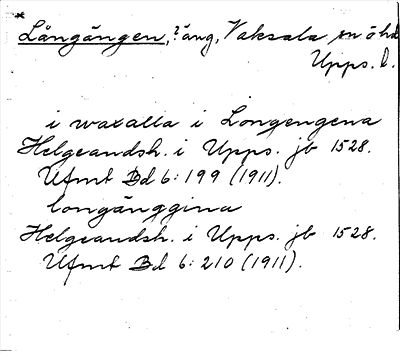 *Långängen, ? äng, Vaksala sn ö hd
Upps. l.
i waxalla i Longengena
Helgeandsh. i Upps. jb 1528.
Ufmt Bd 6: 199 (1911).
longänggina
Helgeandsh. i Upps. jb 1528.
Ufmt Bd 6: 210 (1911).